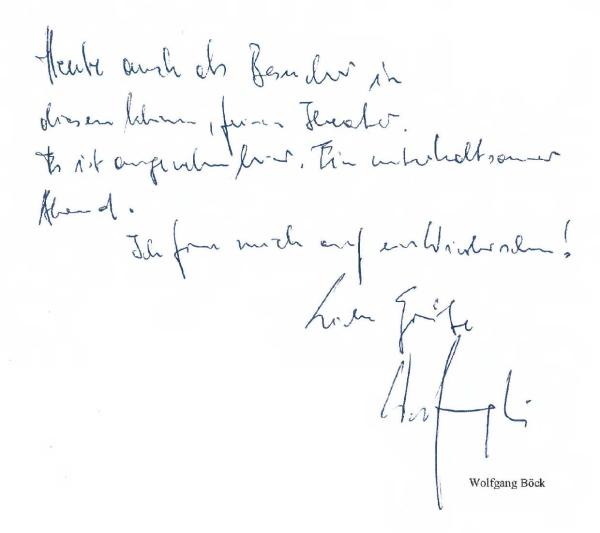 Heute auch als Besucher in
diesem kleinen, feinen Theater.
Es ist angenehm hier. Ein unterhaltsamer
Abend.
Ich freu mich auf ein Wiedersehen!
Liebe Grüße
Wolfgang Böck